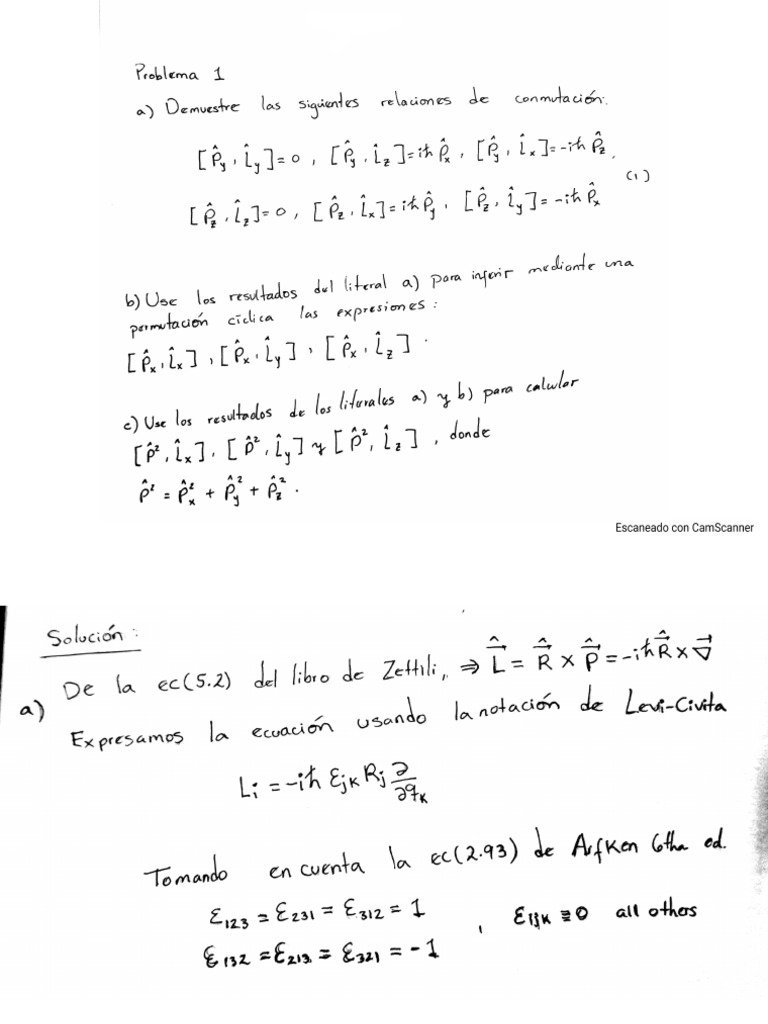 Problema 1
a) Demuestre las siguientes relaciones de conmutación:
[P̂y, L̂y]=0, [P̂y, L̂z]=iħ P̂x, [P̂y, L̂x]=-iħ P̂z,
(1)
[P̂z, L̂z]=0, [P̂z, L̂x]=iħ P̂y, [P̂z, L̂y]=-iħ P̂x
b) Use los resultados del literal a) para inferir mediante una
permutación cíclica las expresiones:
[P̂x, L̂x], [P̂x, L̂y], [P̂x, L̂z].
c) Use los resultados de los literales a) y b) para calcular
[P̂², L̂x], [P̂², L̂y] y [P̂², L̂z], donde
P̂² = P̂x² + P̂y² + P̂z².
Escaneado con CamScanner
Solución:
a) De la ec(5.2) del libro de Zettili, ⇒ L̂⃗ = R̂⃗ × P̂⃗ = -iħ R̂⃗ × ∇⃗
Expresamos la ecuación usando la notación de Levi-Civita
Li = -iħ εjk Rj ∂/∂qk
Tomando en cuenta la ec(2.93) de Arfken 6tha ed.
ε123 = ε231 = ε312 = 1
, εijk ≡ 0 all others
ε132 = ε213 = ε321 = -1